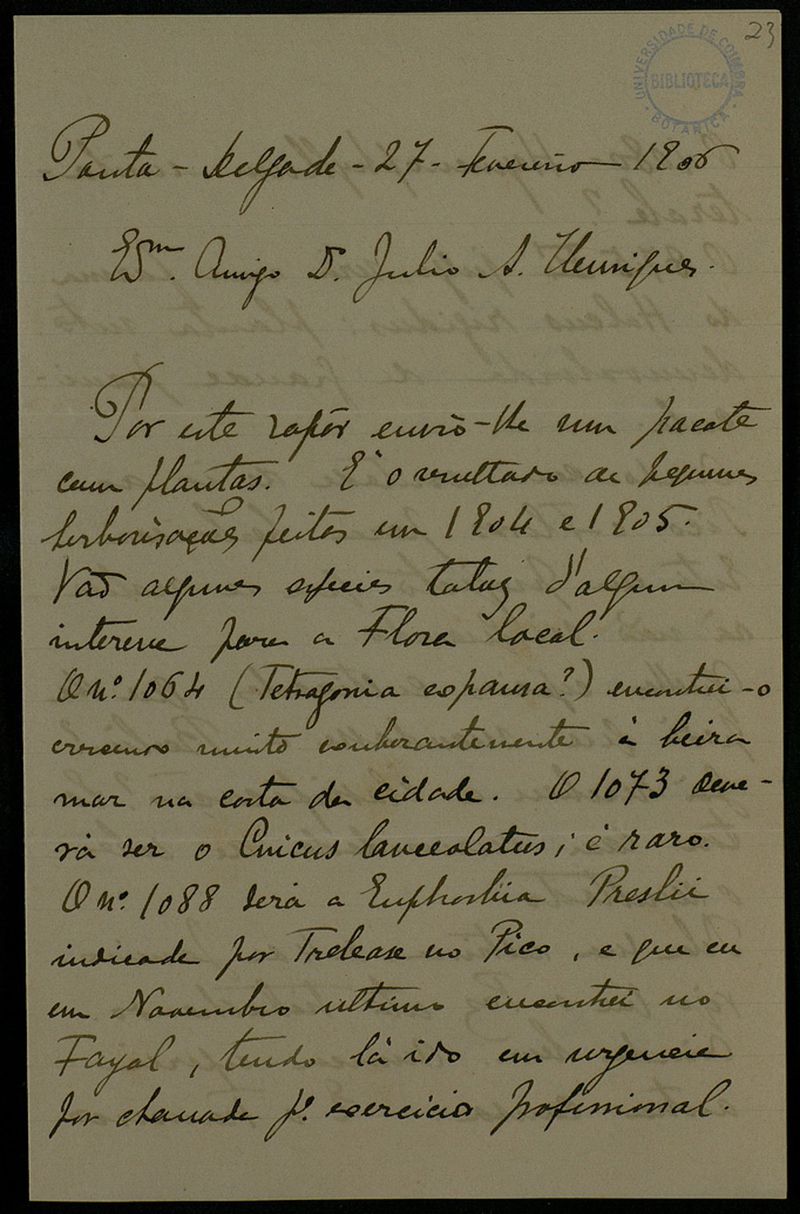 23
UNIVERSIDADE DE COIMBRA
BIBLIOTECA
BOTANICA
Ponta - Delgada - 27 - Fevereiro 1906
Exmº. Amigo D. Julio A. Henriques.
Por este vapôr envio-lhe um pacote
com plantas. E' o resultado de pequenas
herborisações feitas em 1904 e 1905.
Vão algumas especies talvez d'algum
interesse para a Flora local.
O nº. 1064 (Tetragonia expansa?) encontrei-o
crescendo muito exuberantemente á beira
mar na costa da cidade. O 1073 deve-
rá ser o Cnicus lanceolatus; é raro.
O nº. 1088 será a Euphorbia Preslii
indicada por Trelease no Pico, e que eu
em Novembro ultimo encontrei no
Fayal, tendo lá ido em urgencia
por chamada pª. exercicio profissional.